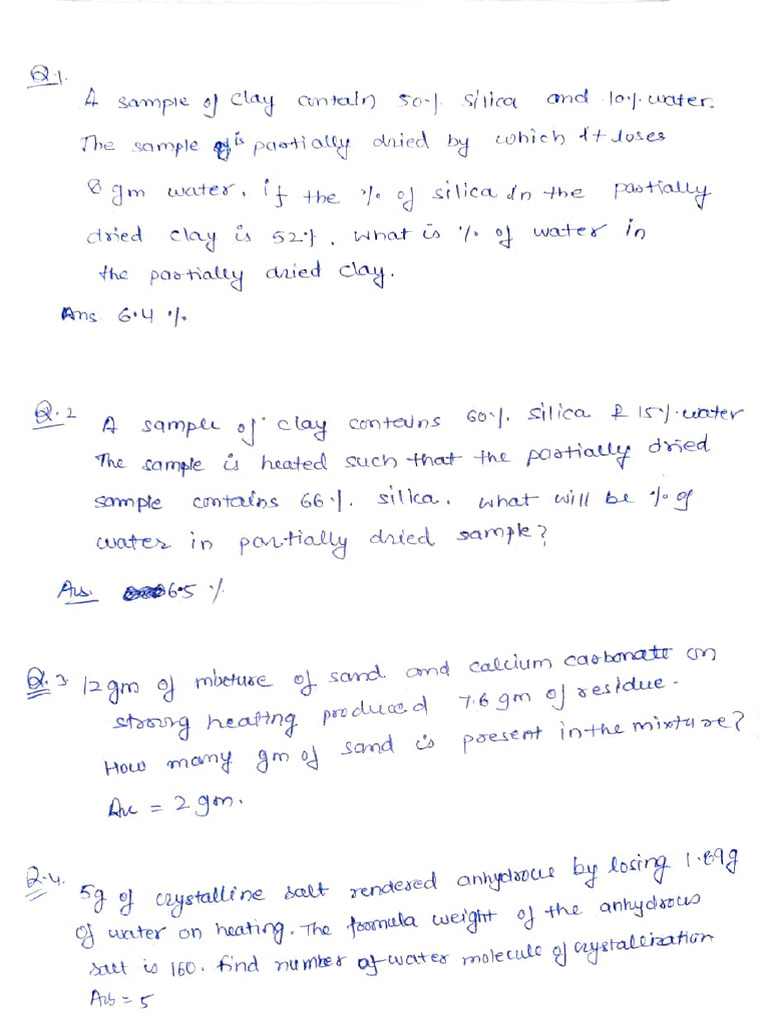 Q.1.
A sample of clay contain 50% silica and 10% water.
The sample is partially dried by which it loses
8 gm water. if the % of silica in the partially
dried clay is 52%. what is % of water in
the partially dried clay.
Ans 6.4 %
Q.2 A sample of clay contains 60%. silica & 15% water
The sample is heated such that the partially dried
sample contains 66%. silica. what will be % of
water in partially dried sample?
Ans. 6.5 %
Q.3 12 gm of mixture of sand and calcium carbonate on
strong heating produced 7.6 gm of residue.
How many gm of sand is present in the mixture?
Ans = 2 gm.
Q.4. 5g of crystalline salt rendered anhydrous by losing 1.89g
of water on heating. The formula weight of the anhydrous
salt is 160. find number of water molecule of crystallization
Ans = 5